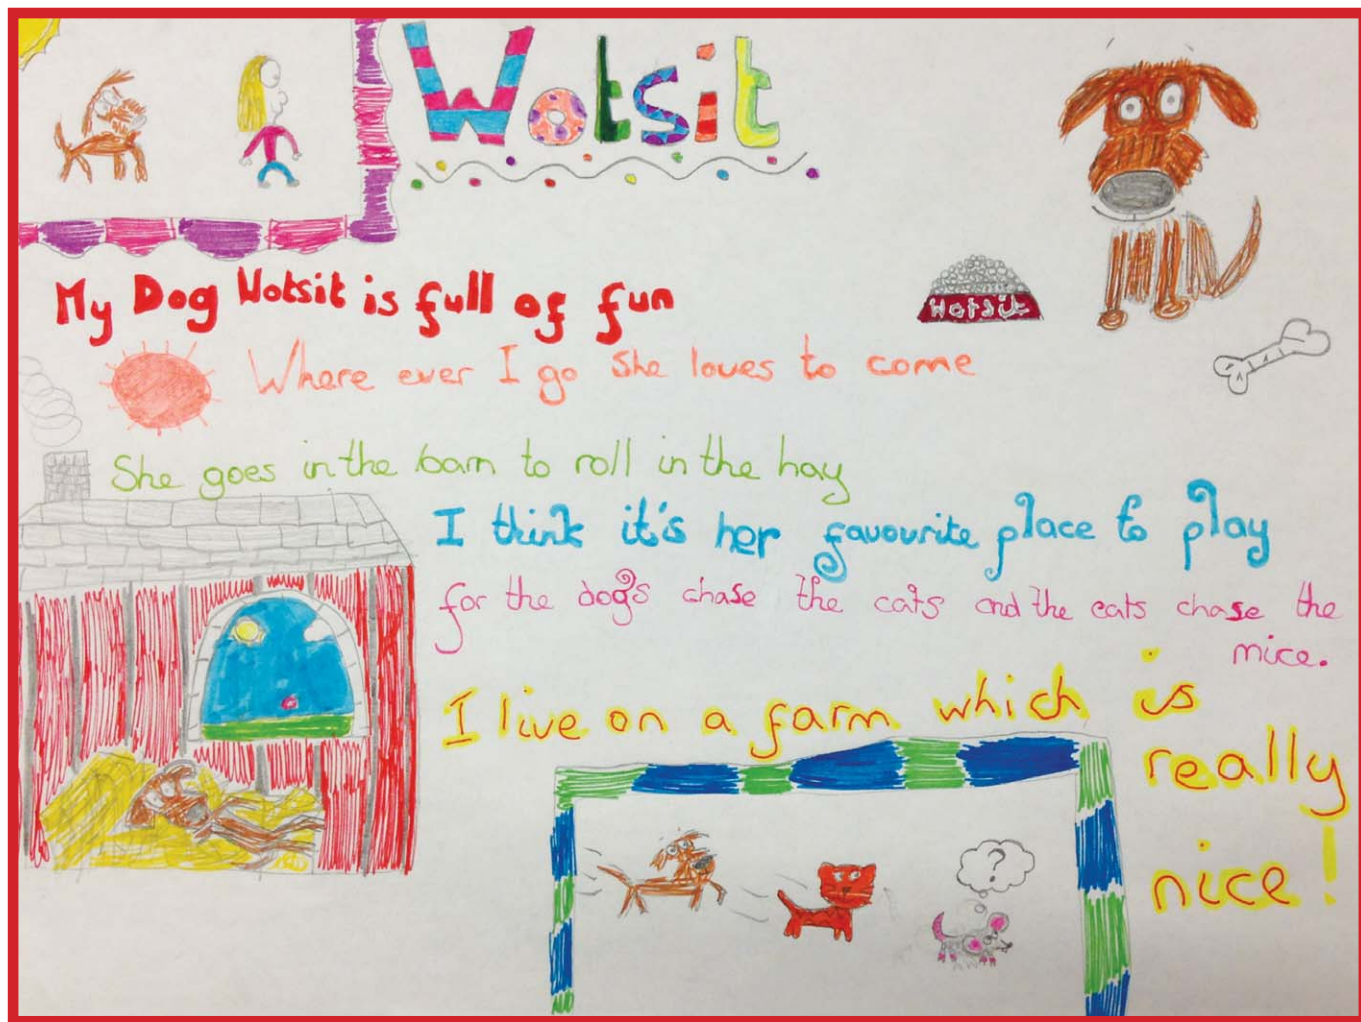 Wotsit
My Dog Wotsit is full of fun
Wotsit
Where ever I go She loves to come
She goes in the barn to roll in the hay
I think it's her favourite place to play
for the dogs chase the cats and the cats chase the
mice.
I live on a farm which is
really
nice!
?